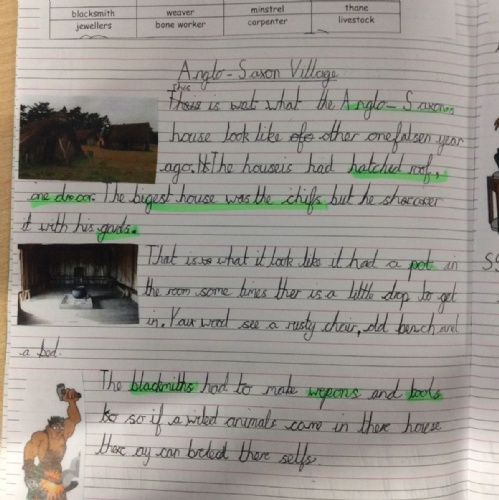 blacksmith weaver minstrel thane
jewellers bone worker carpenter livestock
Anglo-Saxon Village
This
is wat what the Anglo-Saxons
house look like other onefalsen year
ago. The houseis had hatched roof,
one drooa. The bigest house was the chifs but he sharower
it with his gauls.
That is what it look like it had a pot in
the room some times ther is a little drop to get
in. Yaur wood see a rusty cheir, old bench and
a bed.
The blackmiths had to make wepons and tools
to so if a wiled animals came in there house
there ay can boteed there selfs.
S